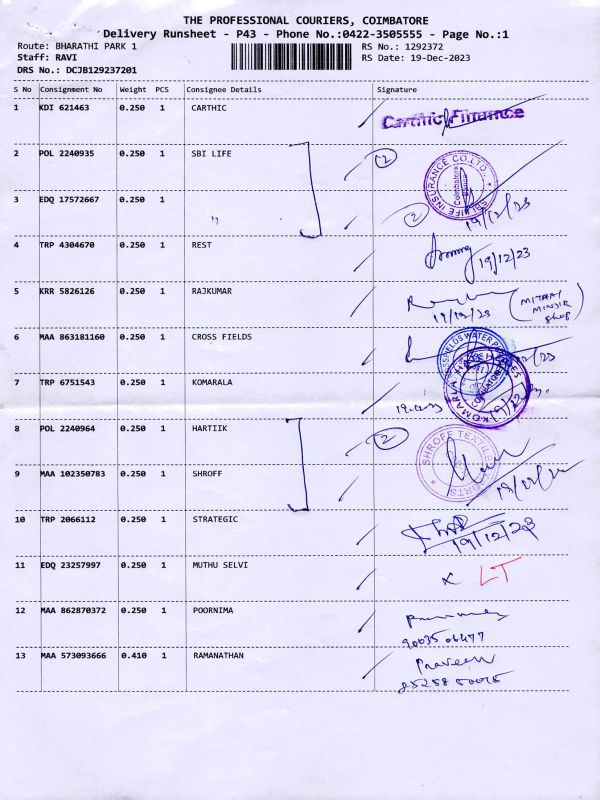 THE PROFESSIONAL COURIERS, COIMBATORE
Delivery Runsheet - P43 - Phone No.:0422-3505555 - Page No.:1
Route: BHARATHI PARK 1 RS No.: 1292372
Staff: RAVI RS Date: 19-Dec-2023
DRS No.: DCJB129237201
S No Consignment No Weight PCS Consignee Details Signature
1 KDI 621463 0.250 1 CARTHIC Carthic Finance
2 POL 2240935 0.250 1 SBI LIFE 2
LIFE INSURANCE CO.LTD.
Coimbatore
3 EDQ 17572667 0.250 1 " 2 19/12/23
4 TRP 4304670 0.250 1 REST 19/12/23
5 KRR 5826126 0.250 1 RAJKUMAR
19/12/23
6 MAA 863181160 0.250 1 CROSS FIELDS
7 TRP 6751543 0.250 1 KOMARALA
KOMARLA
8 POL 2240964 0.250 1 HARTIIK 2
SHROFF TEXTILES
9 MAA 102350783 0.250 1 SHROFF
10 TRP 2066112 0.250 1 STRATEGIC
19/12/23
11 EDQ 23257997 0.250 1 MUTHU SELVI LT
12 MAA 862870372 0.250 1 POORNIMA
13 MAA 573093666 0.410 1 RAMANATHAN Praveen